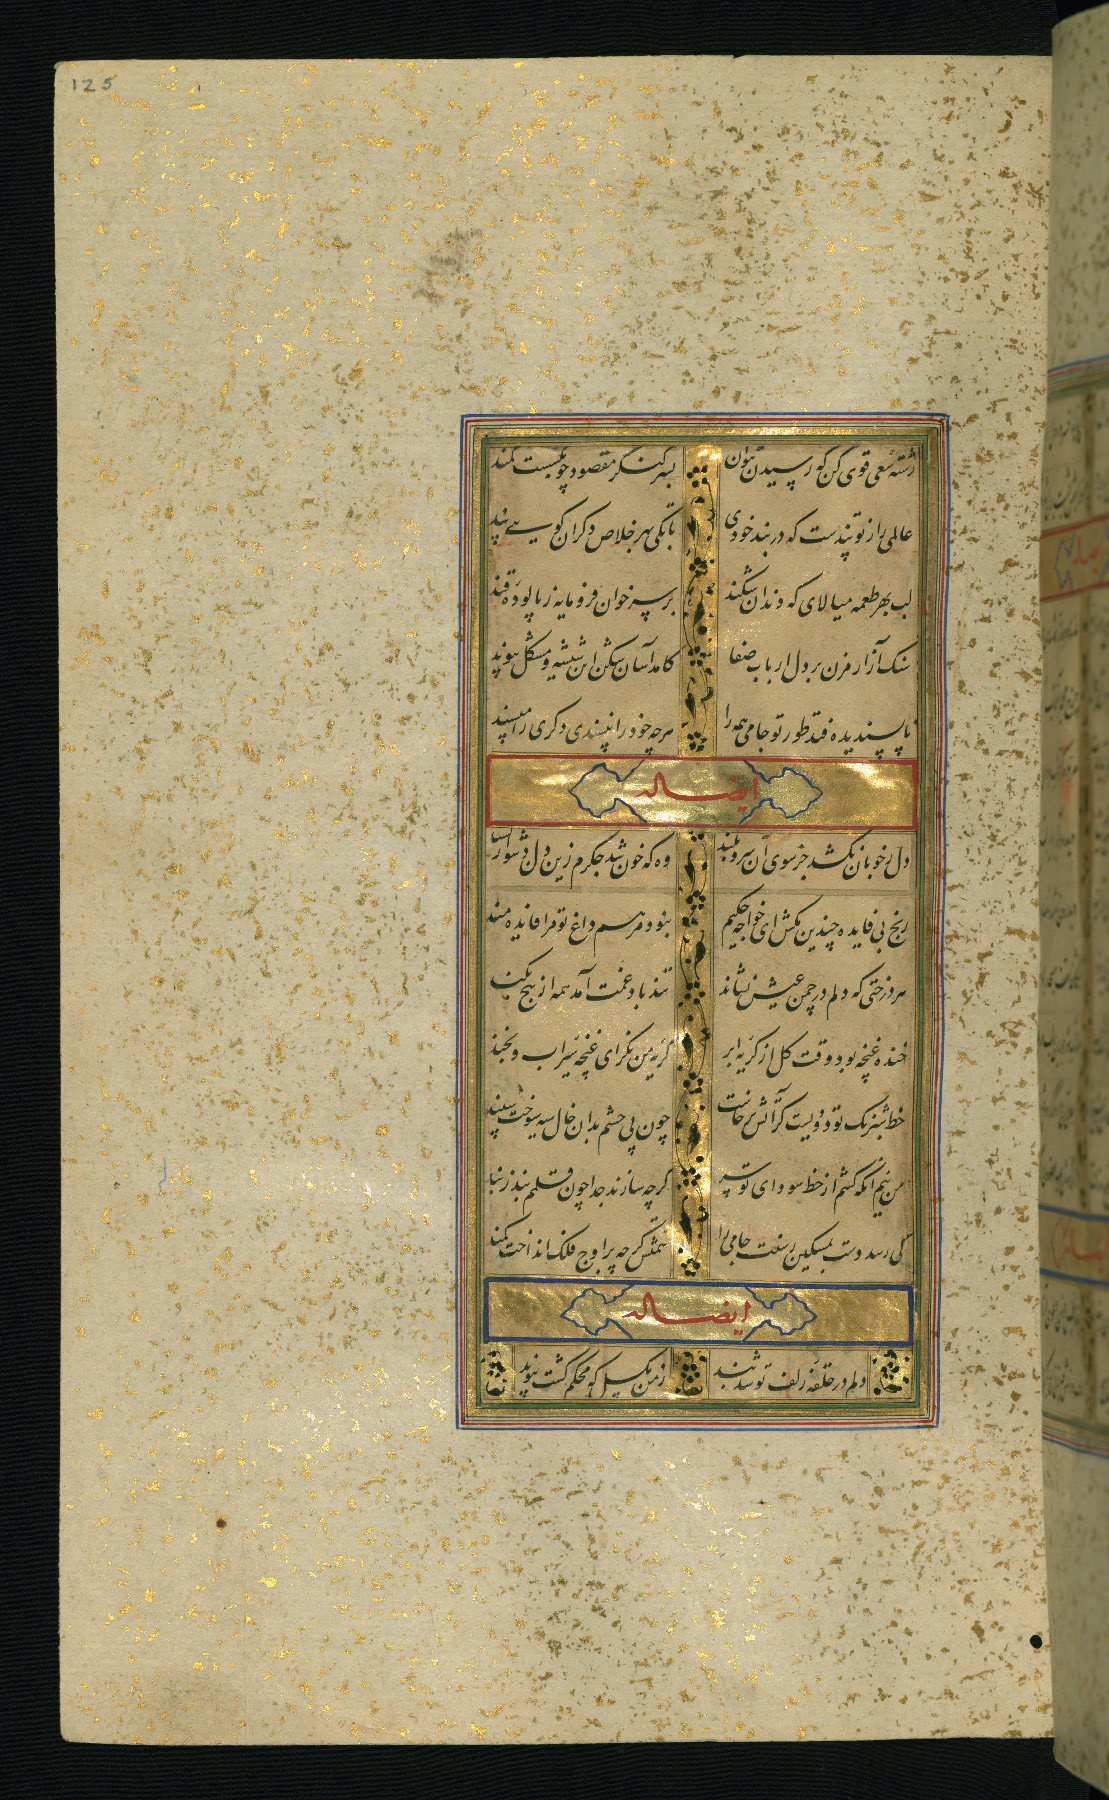 125
رشته سعی قوی کن که رسیدن نتوان بسر کنکر مقصود چو بکسست کمند
عالمی را ز تو پندست که در بند خودی تا بکی بهر خلاص دکران کویی پند
لب بهر طعمه میالای که دندان شکند بر سر خوان فرومایه ز پالوده قند
سنک آزار مزن بر دل ارباب صفا کامد آسان شکن این شیشه و مشکل پیوند
ناپسندیده فتد طور تو جامی همه را هرچه خود را نپسندی دکری را مپسند
ایضا له
دل ز خوبان نکشد جز سوی آن سرو بلند وه که خون شد جکرم زین دل دشوارپسند
رنج بی فایده چندین مکش ای خواجه حکیم نبود مرهم داغ تو مرا فایده مند
هر درختی که دلم در چمن عیش نشاند تند باد غمت آمد همه از بیخ بکند
خنده غنچه بود وقت کل از کریه ابر کریه من نکر ای غنچه سیراب و بخند
خط شبرنک تو دودیست کز آتش برخاست چون پی چشم بدان خال سیه سوخت سپند
من نیم آنکه کشم از خط سودای تو سر کرچه سازند جدا چون قلمم بند ز بند
کی رسد دست بمسکین رسنت جامی را همتش کرچه بر اوج فلک انداخت کمند
ایضا له
دلم در حلقه زلف تو شد بند ز من مکسل که محکم کشت پیوند